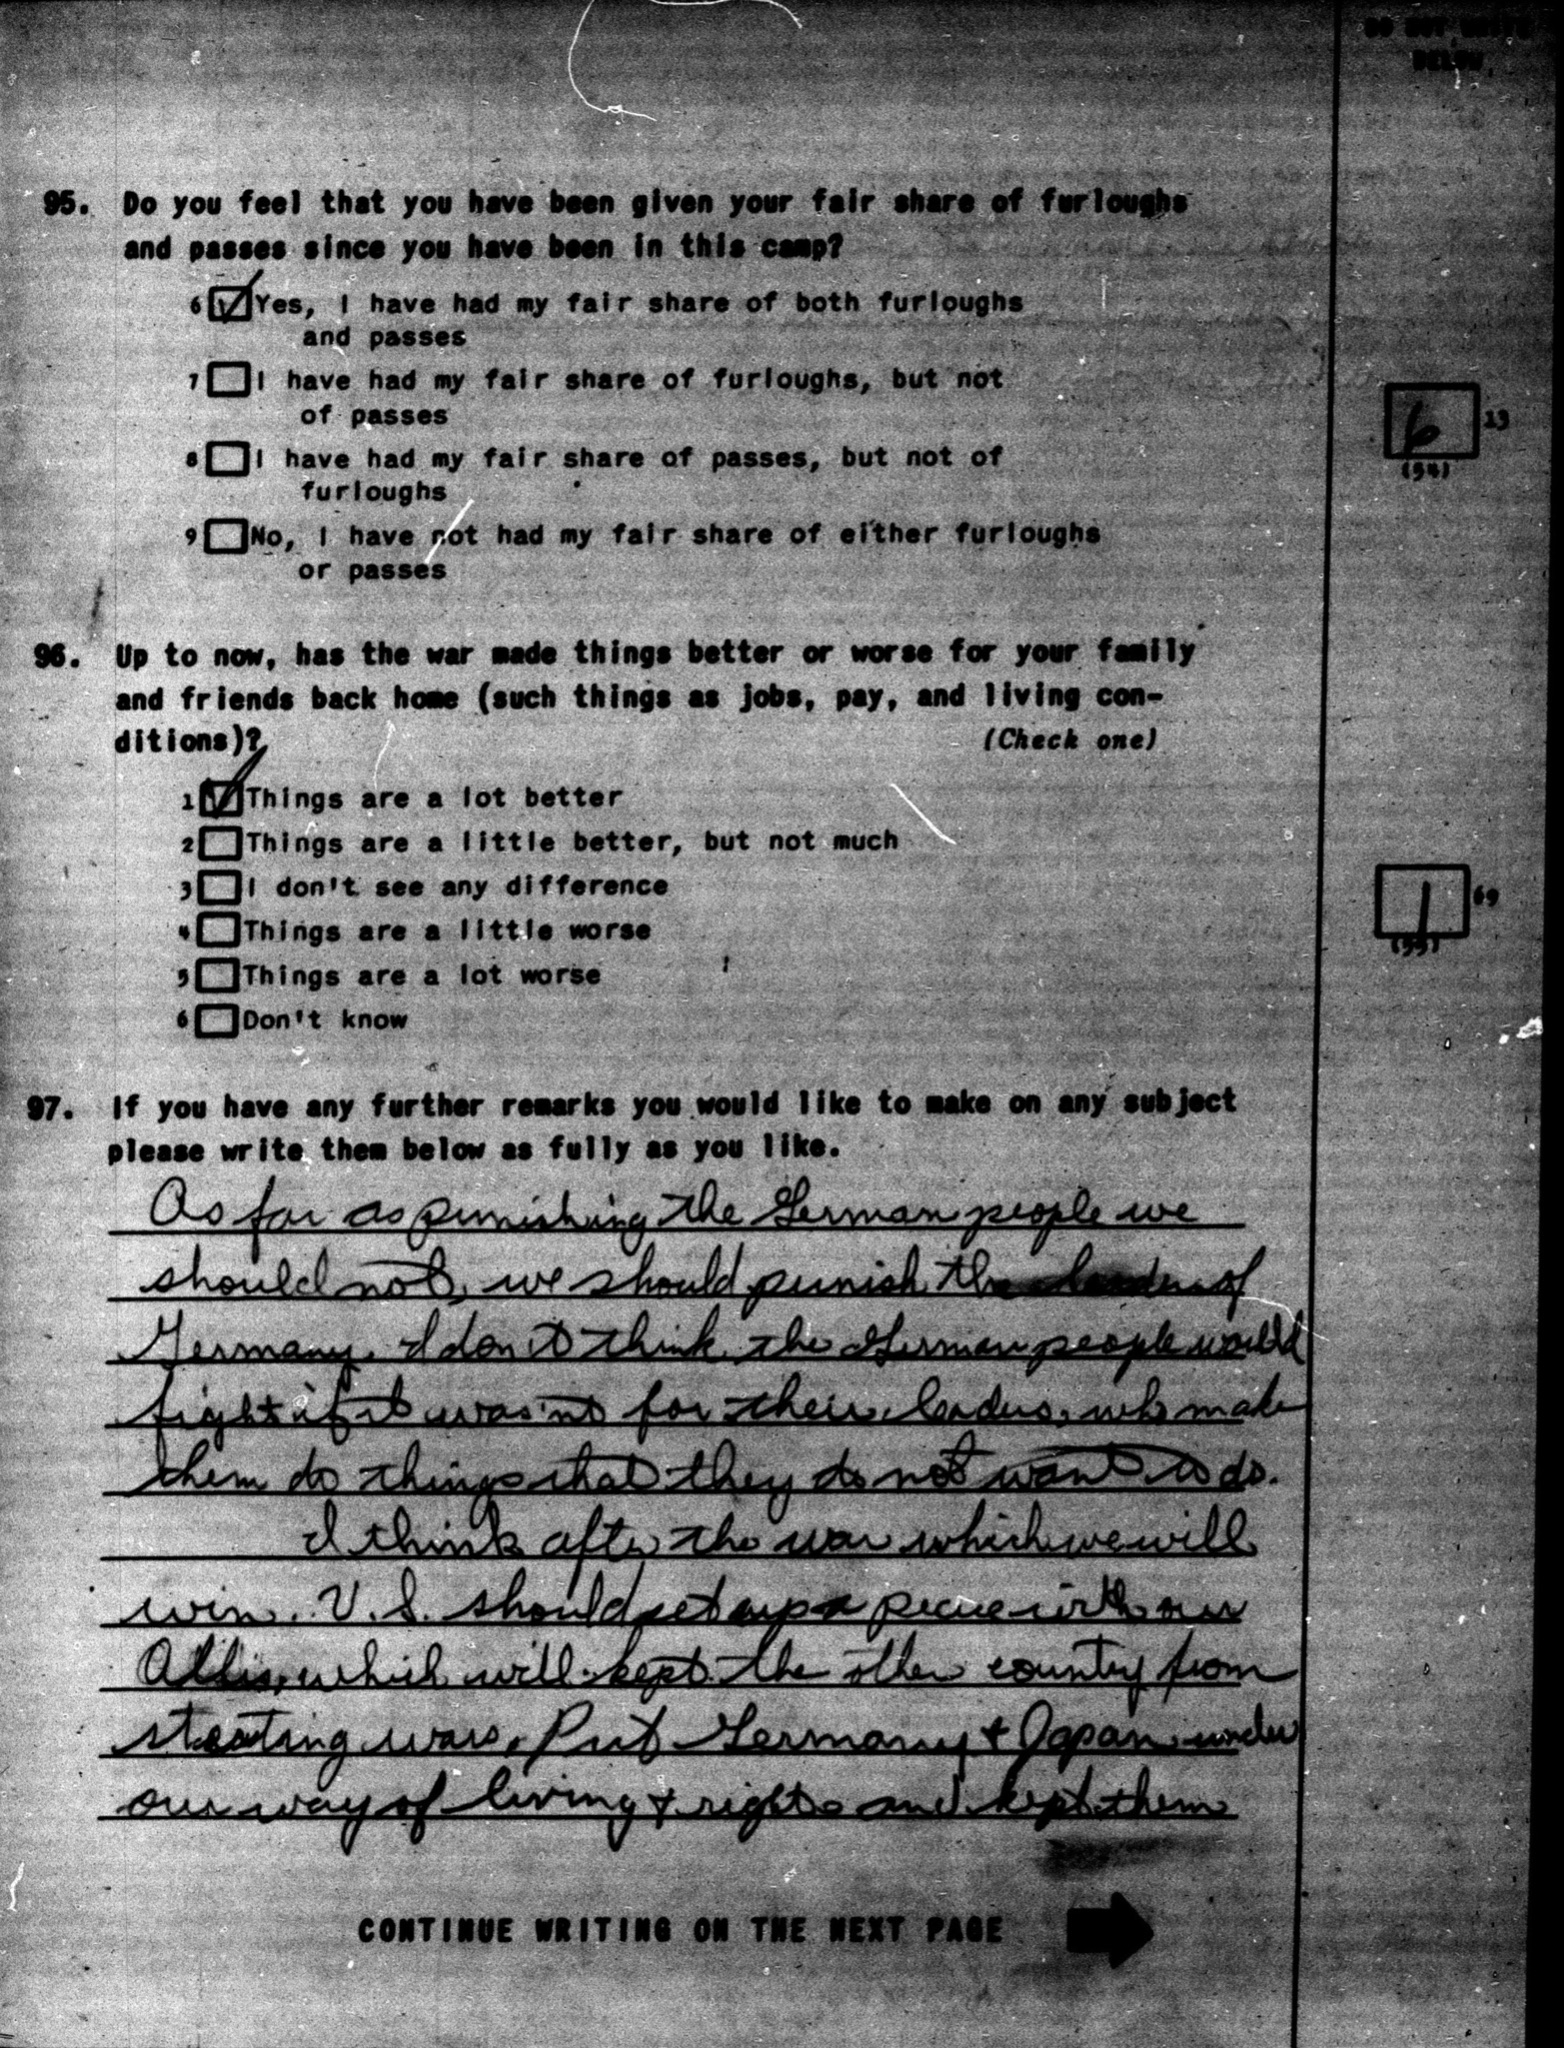 DO NOT WRITE
BELOW
95. Do you feel that you have been given your fair share of furloughs
and passes since you have been in this camp?
6 Yes, I have had my fair share of both furloughs
and passes
7 I have had my fair share of furloughs, but not
of passes
6 13
(54)
8 I have had my fair share of passes, but not of
furloughs
9 No, I have not had my fair share of either furloughs
or passes
96. Up to now, has the war made things better or worse for your family
and friends back home (such things as jobs, pay, and living con-
ditions)?
(Check one)
1 Things are a lot better
2 Things are a little better, but not much
3 I don't see any difference
1 69
(55)
4 Things are a little worse
5 Things are a lot worse
6 Don't know
97. If you have any further remarks you would like to make on any subject
please write them below as fully as you like.
As far as punishing the German people we
should not, we should punish the leader of
Germany. I don't think the German people would
fight if it was'nt for their leaders, who make
them do things that they do not want to do.
I think after the war which we will
win. U.S. should set up a peace with our
Allis, which will kept the other country from
starting wars. Put Germany & Japan under
our way of living & rights and kept them
CONTINUE WRITING ON THE NEXT PAGE